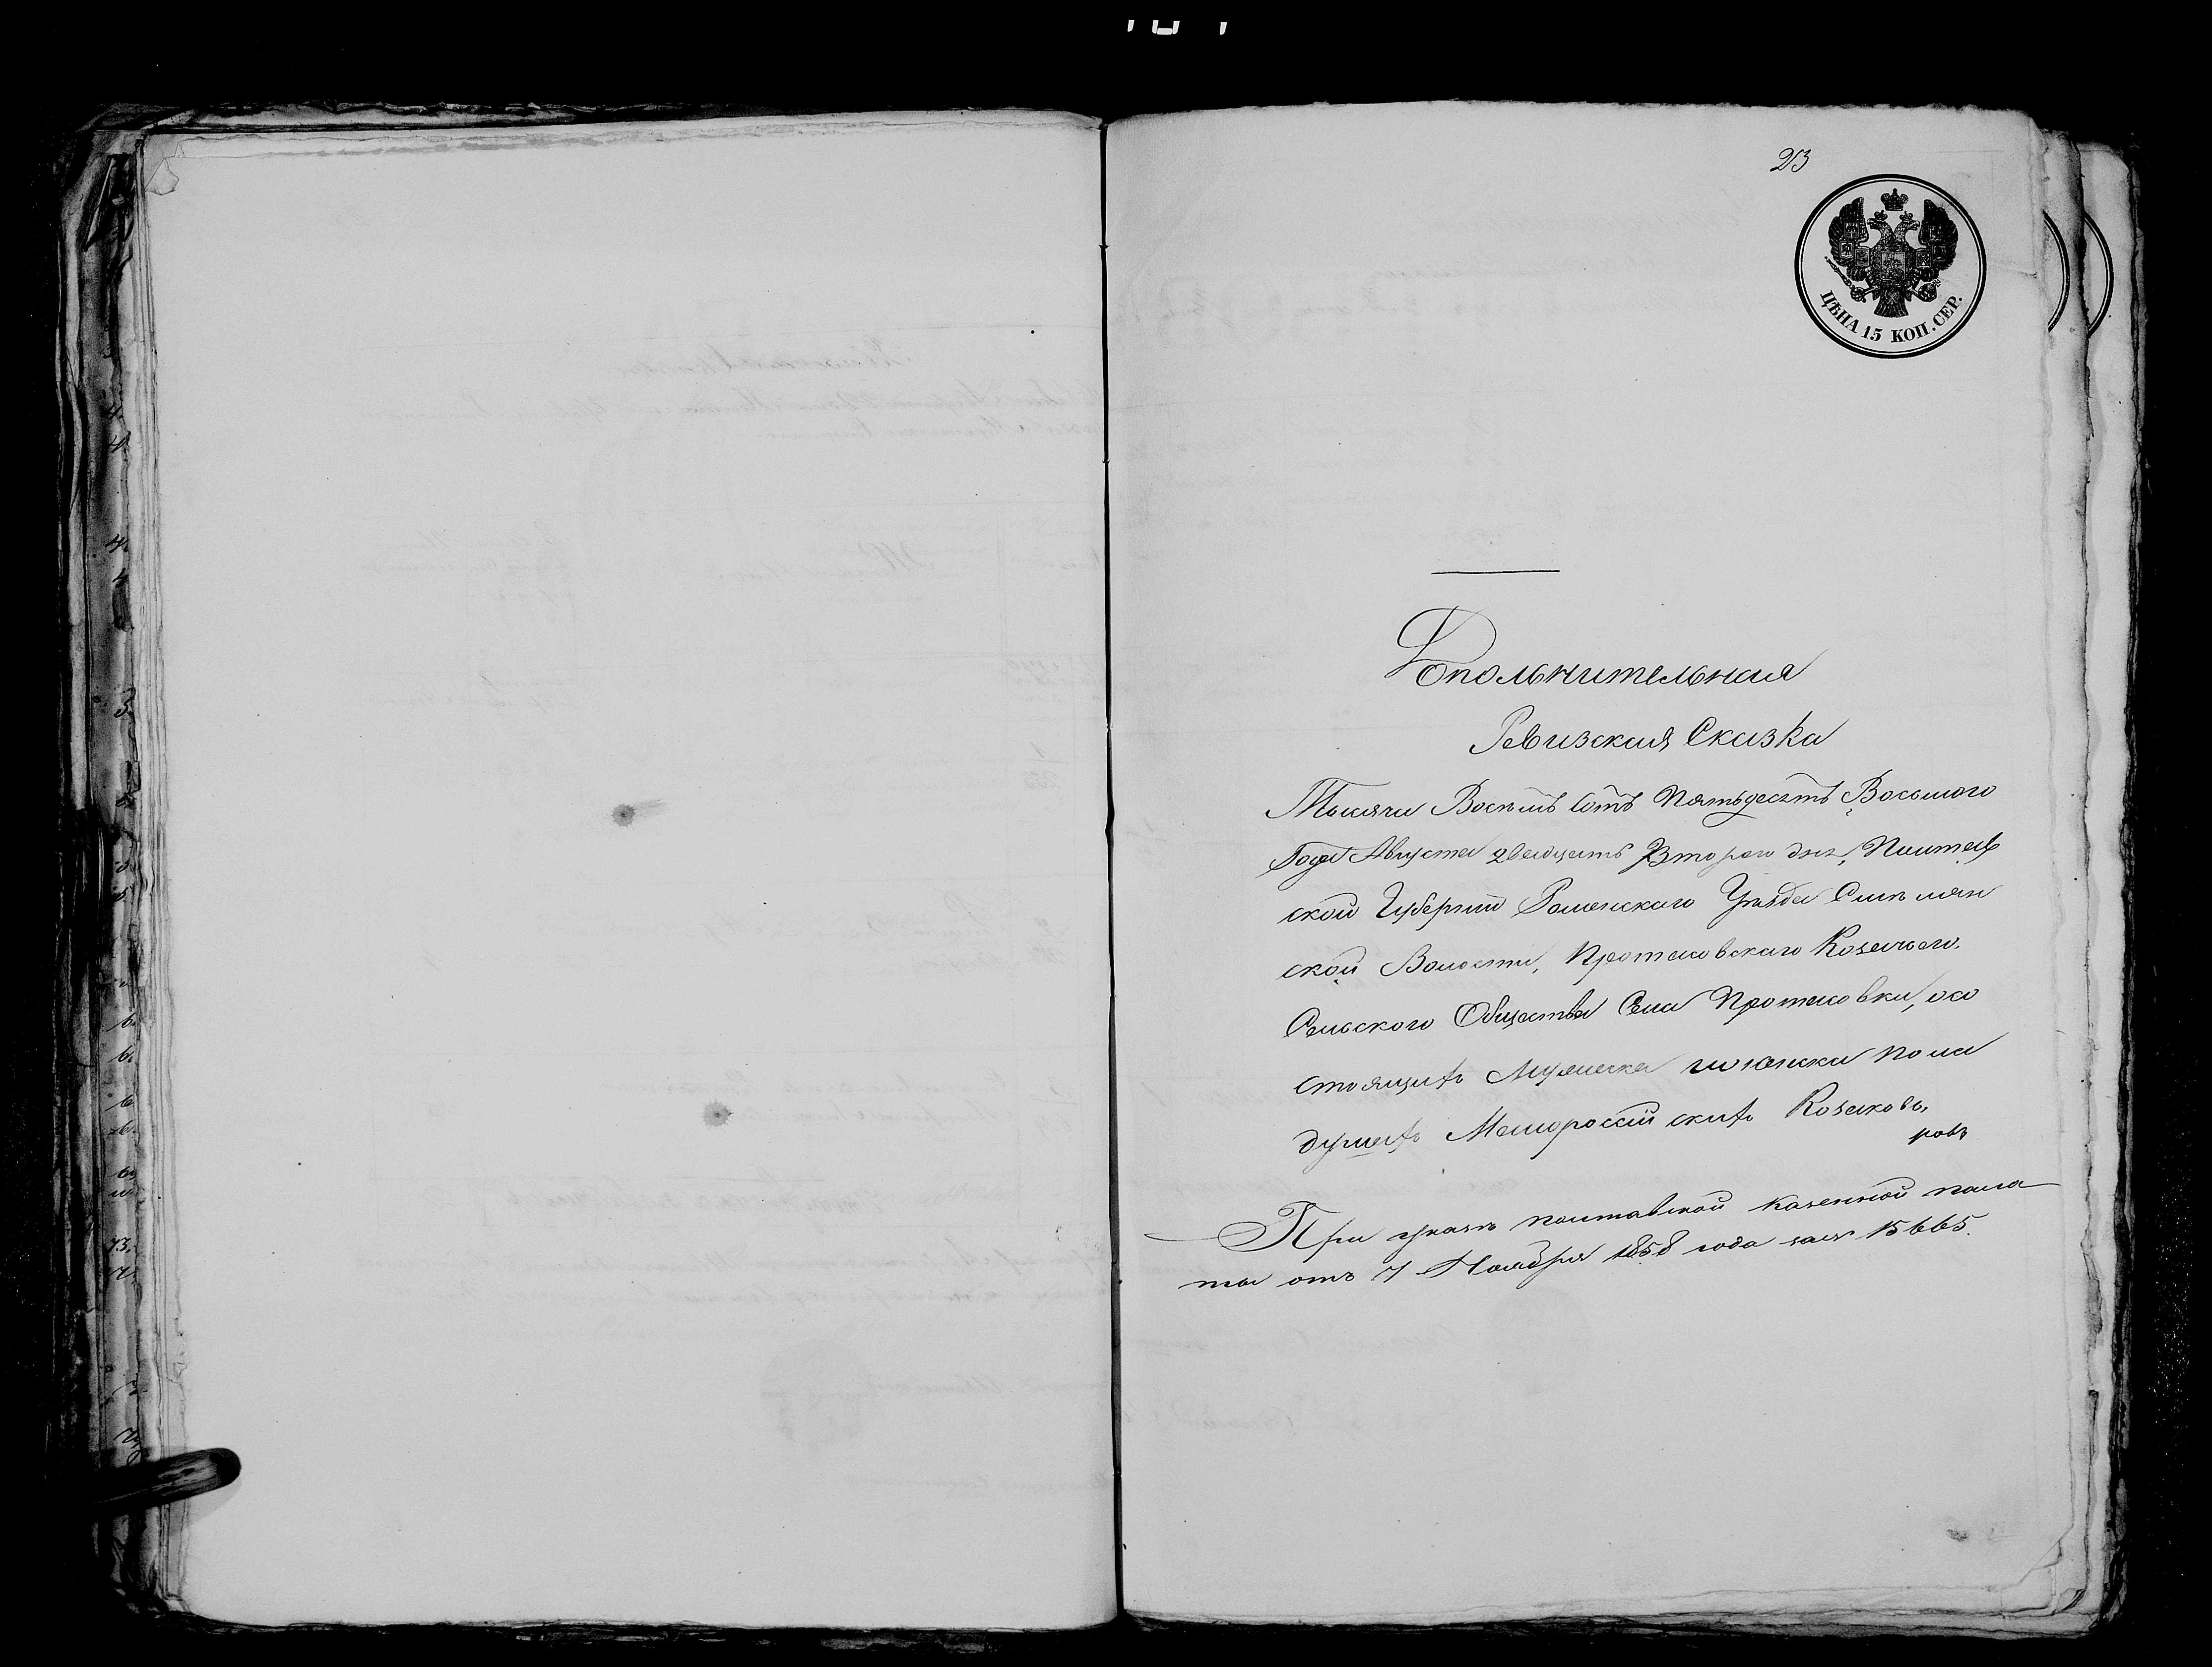 23
ЦѢНА 15 КОП. СЕР.
Дополнительная
Ревизская Сказка
Тысяча Восемь Сотъ Пятьдесятъ Восьмого
Года Августа двадцать Второго дня, Полтав
ской Губерніи Роменскаго Уѣзда Смѣлян
ской Волости, Протасовскаго Козачьего
Сельского Общества Села Протасовки, осо
стоящихъ Мужеска и женска пола
душахъ Малороссійскихъ Козаковъ,
При указѣ полтавской казенной пала
ты отъ 7 Ноября 1858 года за № 15665.